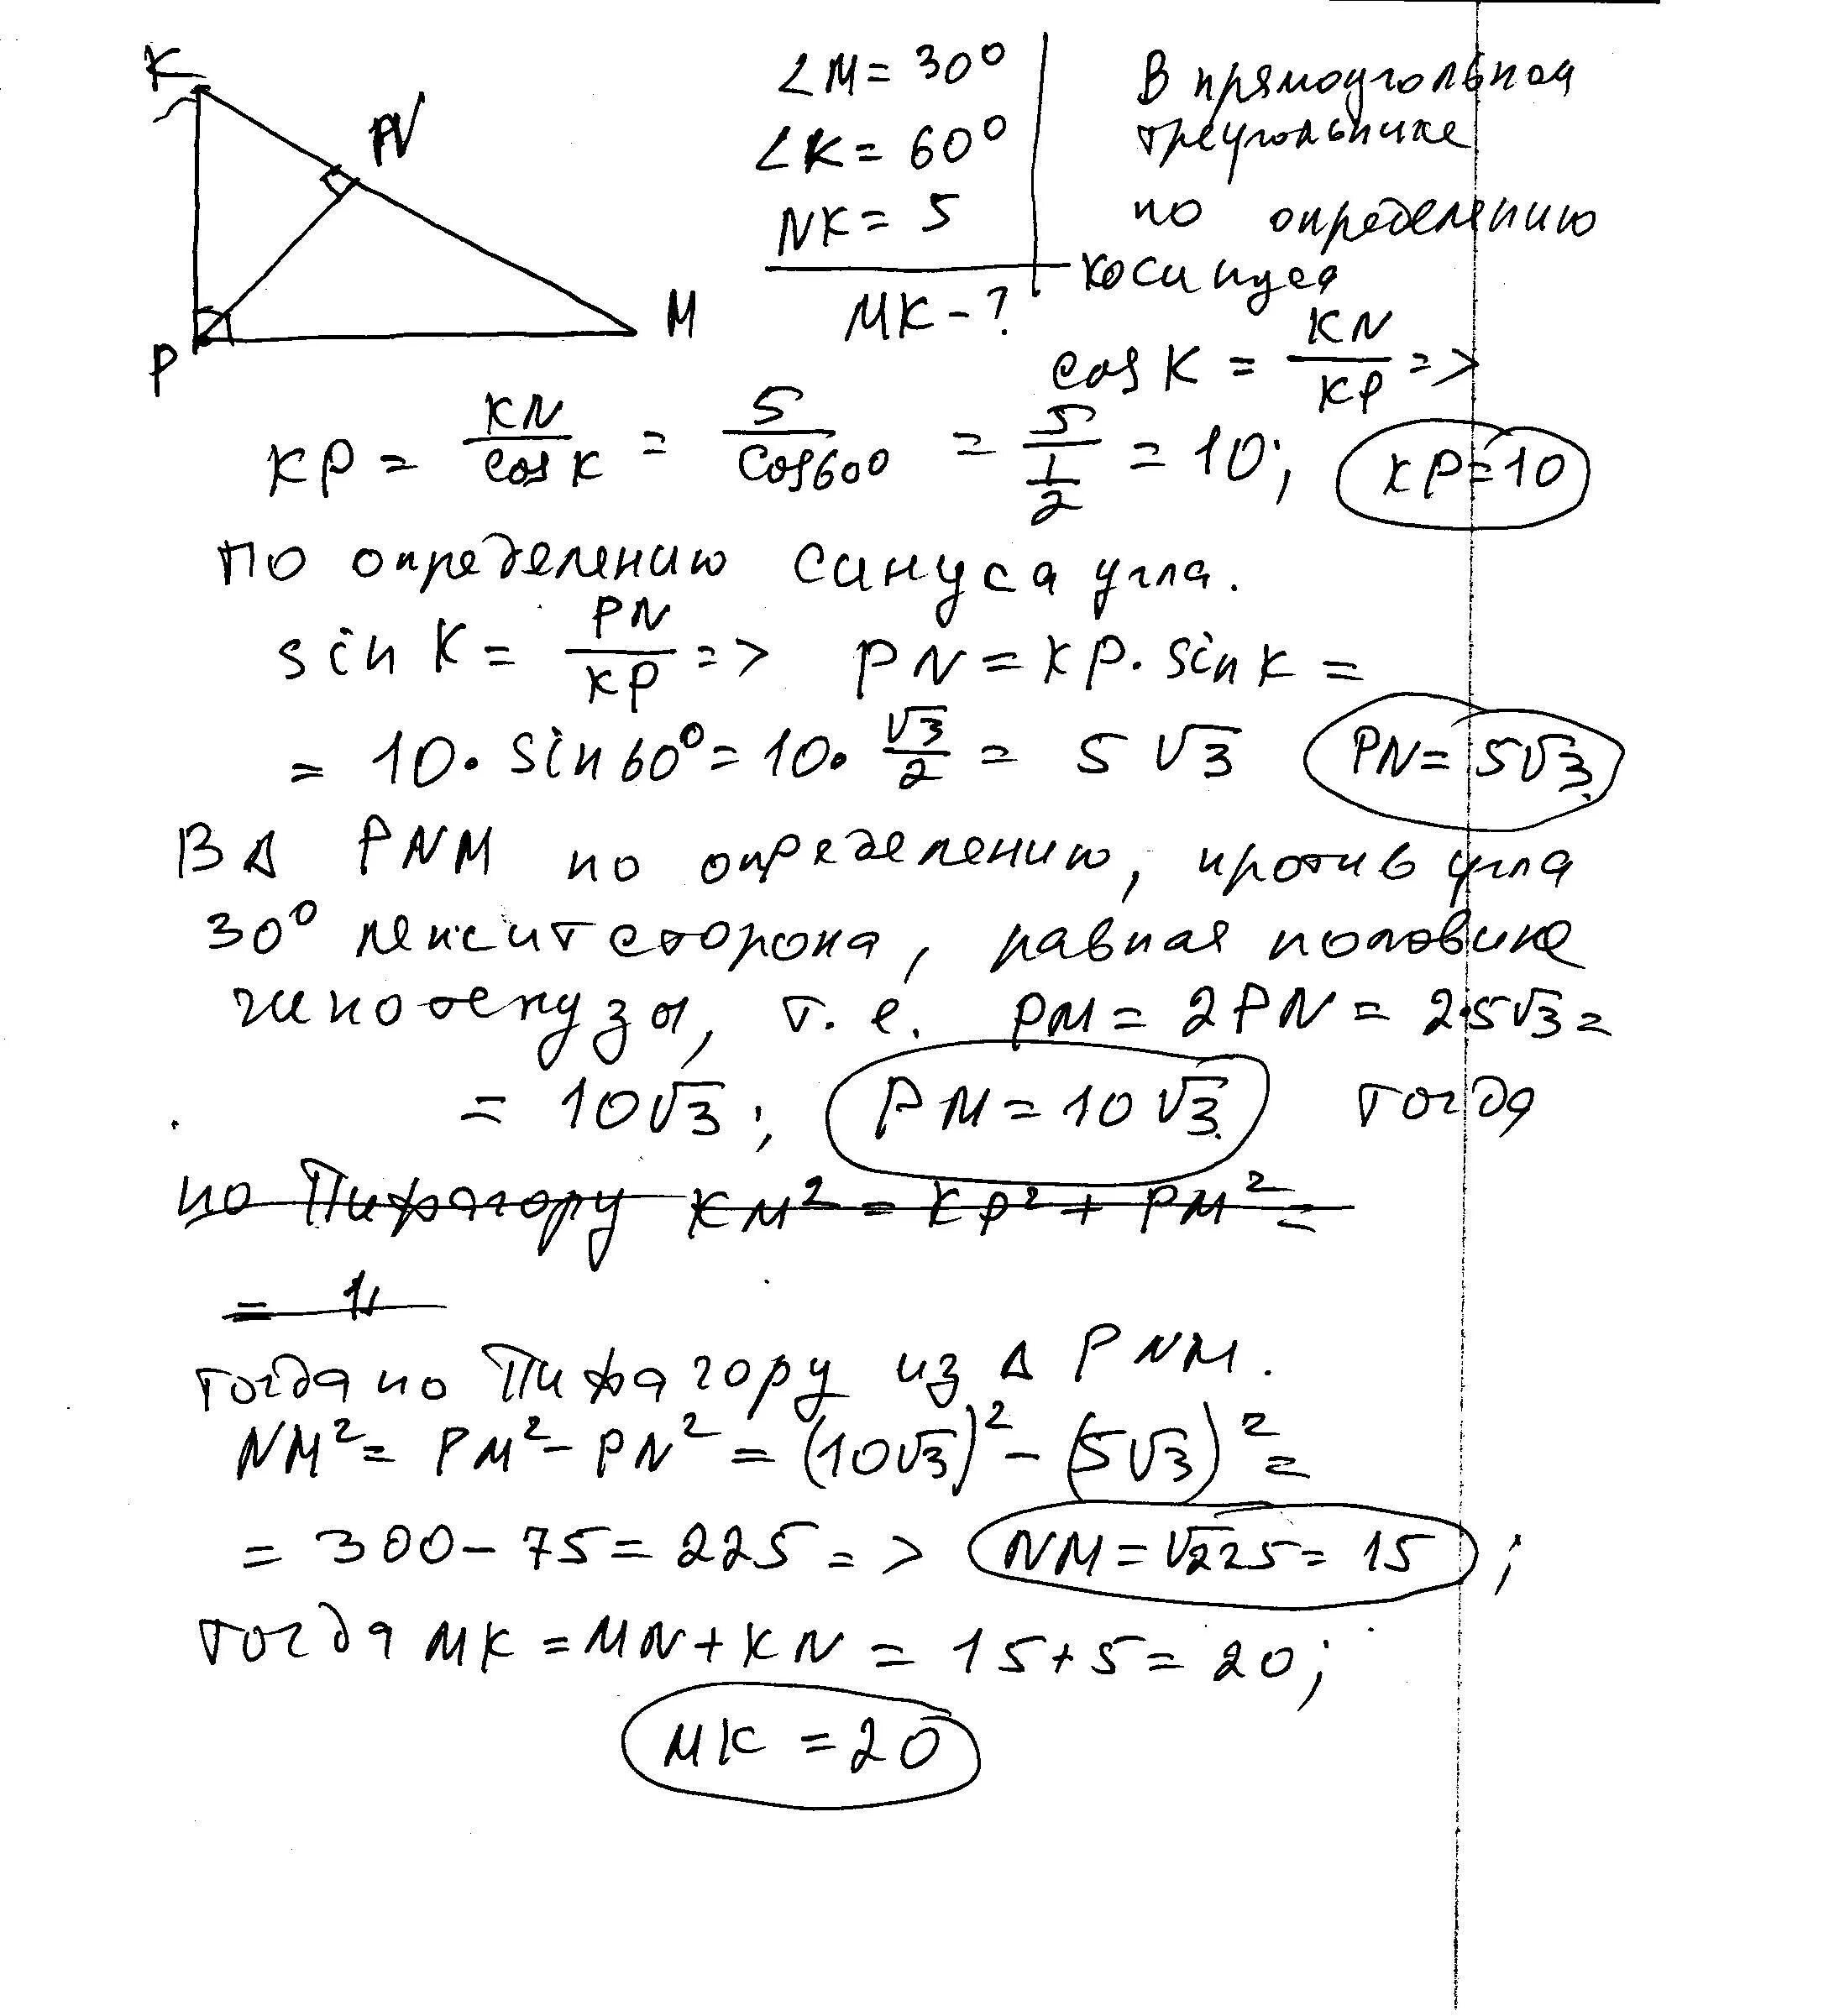 K
N
P
M
∠M = 30°
∠K = 60°
NK = 5
MK - ?
В прямоугольном
треугольнике
по определению
косинуса
cos K = KN/KP =>
KP = KN/cos K = 5/cos 60° = 5/(1/2) = 10; KP = 10
по определению синуса угла.
sin K = PN/KP => PN = KP · sin K =
= 10 · sin 60° = 10 · √3/2 = 5√3 PN = 5√3
В Δ PNM по определению, против угла
30° лежит сторона, равная половине
гипотенузы, т. е. PM = 2PN = 2·5√3 =
= 10√3; PM = 10√3 тогда
по Пифагору KM² = KP² + PM² =
= 1
тогда по Пифагору из Δ PNM.
NM² = PM² - PN² = (10√3)² - (5√3)² =
= 300 - 75 = 225 => NM = √225 = 15;
тогда MK = MN + KN = 15 + 5 = 20;
MK = 20